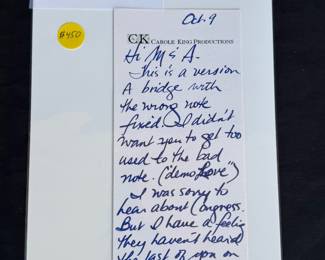 $450
Oct. 9
CK CAROLE KING PRODUCTIONS
Hi M & A.
This is a version
A bridge with
the wrong note
fixed. I didn't
want you to get too
used to the bad
note. ("demo love")
I was sorry to
hear about Congress.
But I have a feeling
they haven't heard
the last of you on